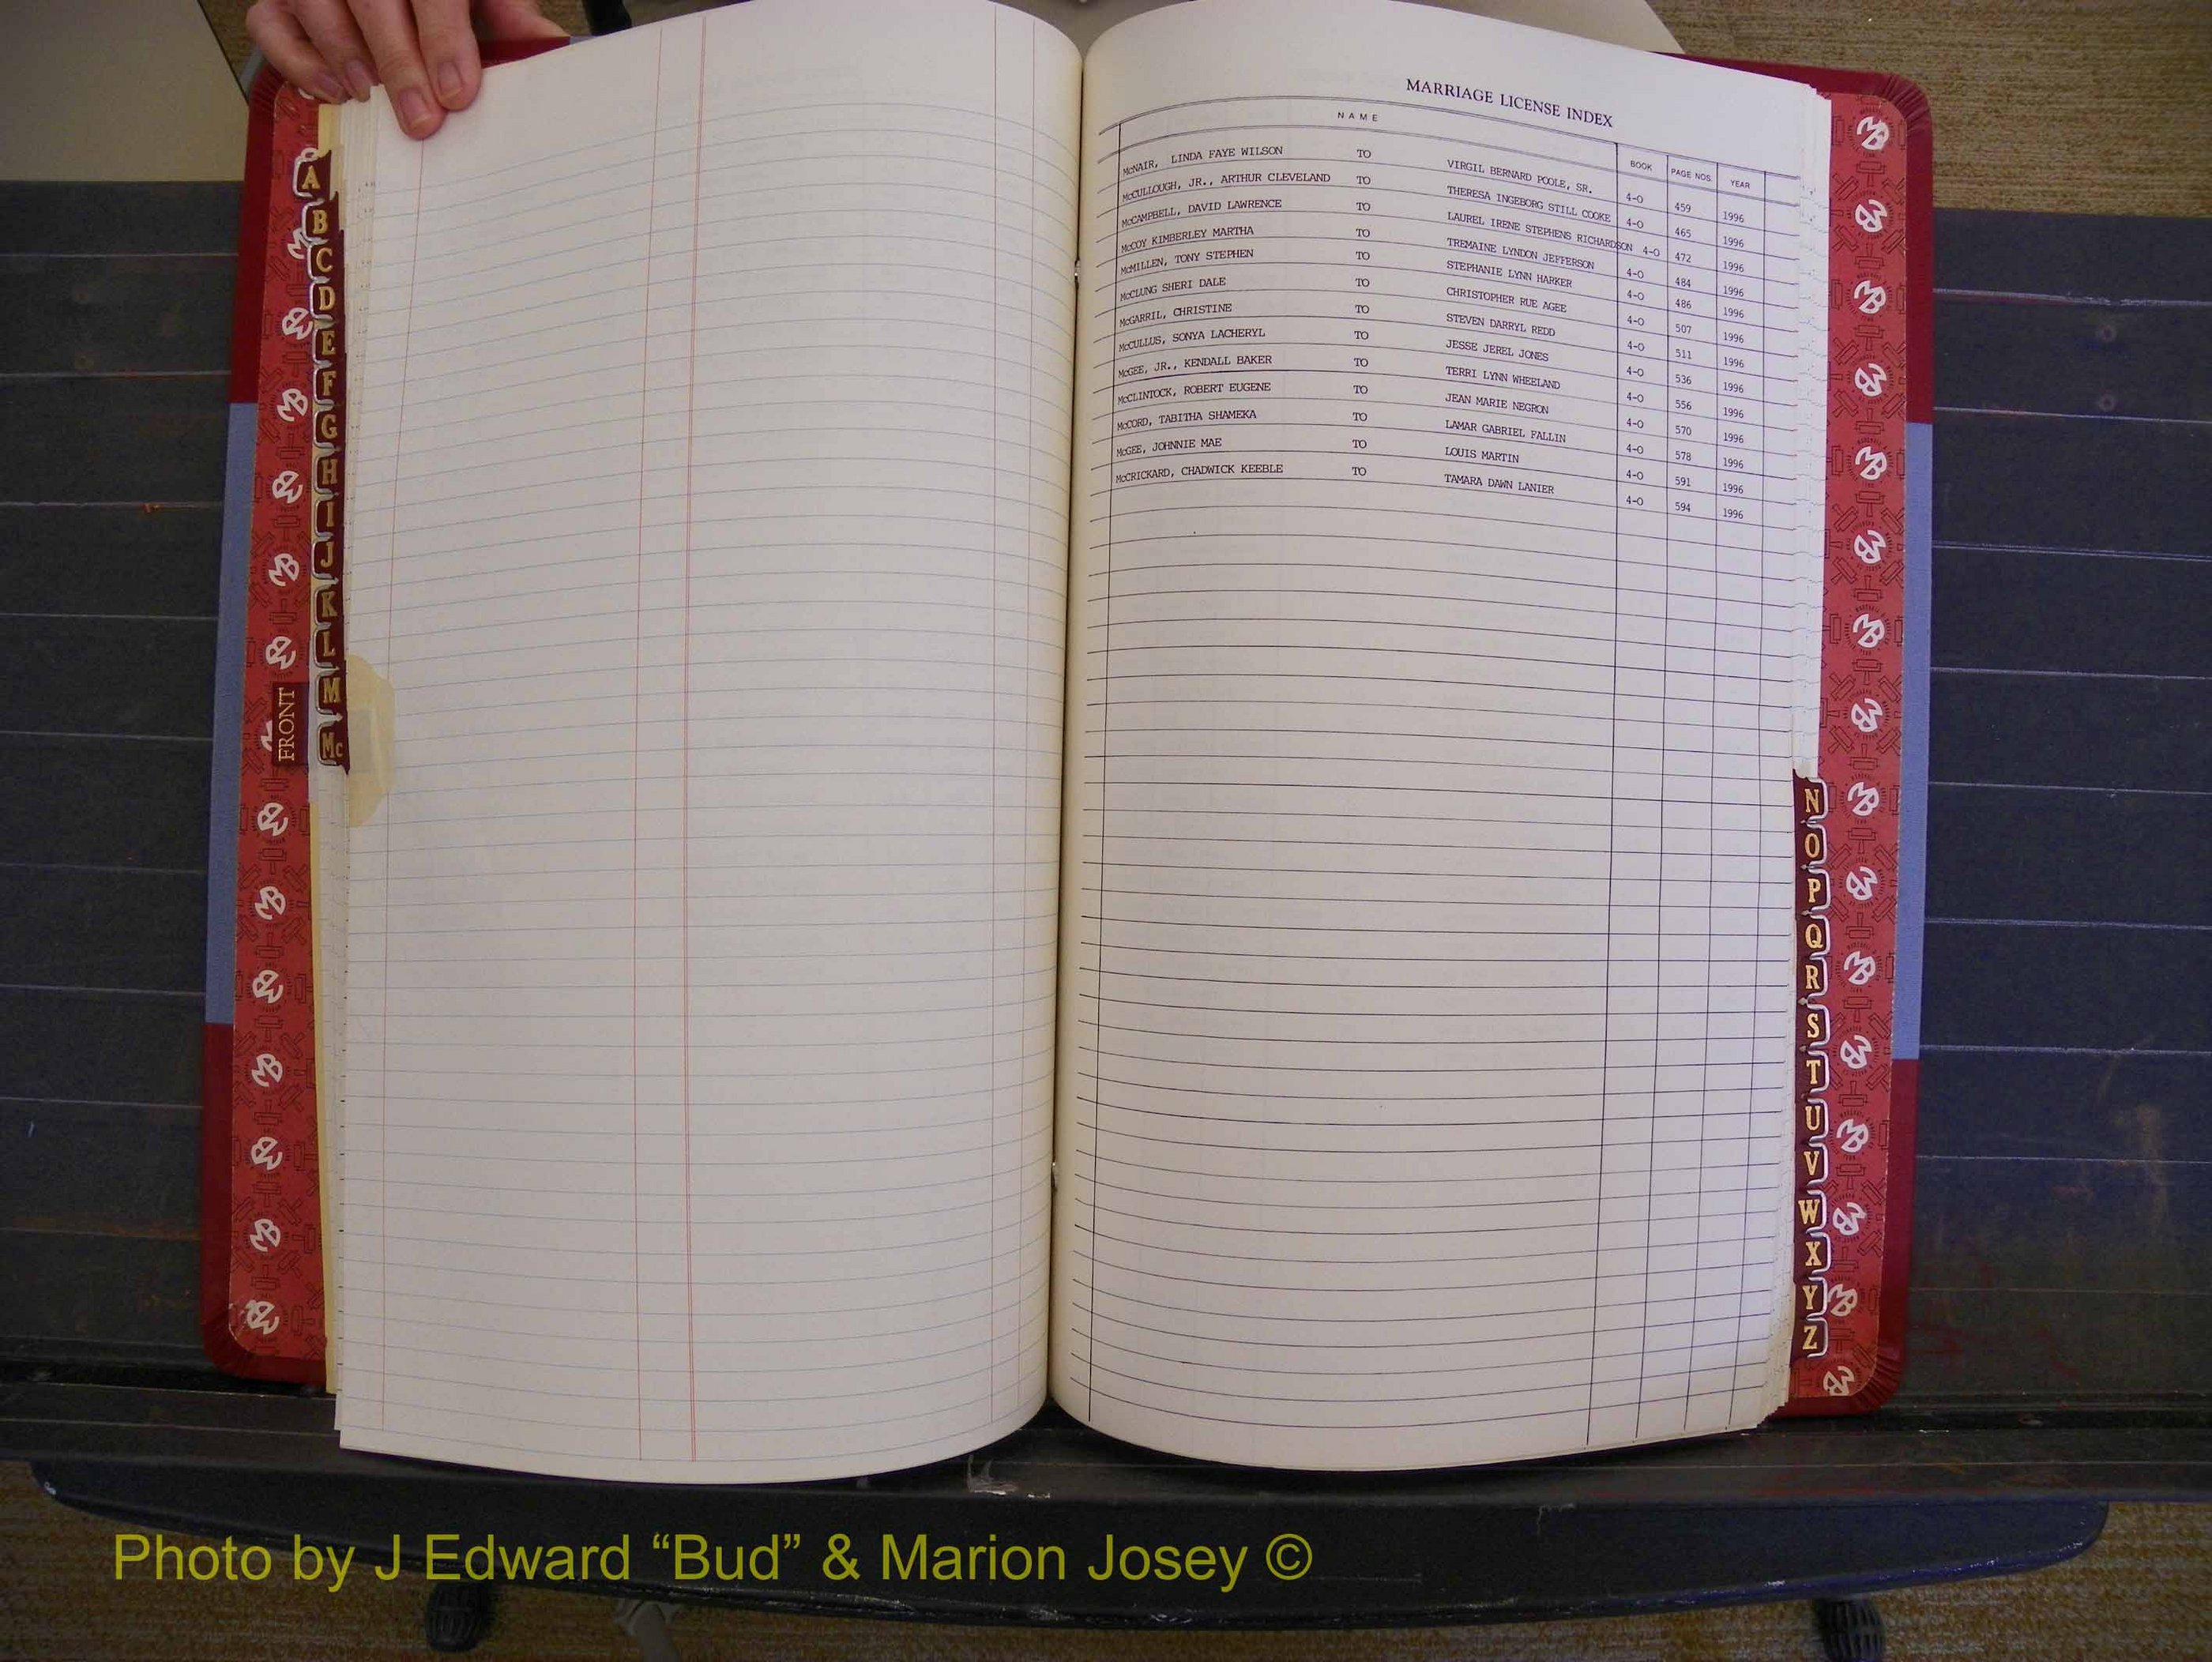 MARRIAGE LICENSE INDEX
NAME BOOK PAGE NOS. YEAR
McNAIR, LINDA FAYE WILSON TO VIRGIL BERNARD POOLE, SR. 4-O 459 1996
McCULLOUGH, JR., ARTHUR CLEVELAND TO THERESA INGEBORG STILL COOKE 4-O 465 1996
McCAMPBELL, DAVID LAWRENCE TO LAUREL IRENE STEPHENS RICHARDSON 4-O 472 1996
McCOY KIMBERLEY MARTHA TO TREMAINE LYNDON JEFFERSON 4-O 484 1996
McMILLEN, TONY STEPHEN TO STEPHANIE LYNN HARKER 4-O 486 1996
McCLUNG SHERI DALE TO CHRISTOPHER RUE AGEE 4-O 507 1996
McGARRIL, CHRISTINE TO STEVEN DARRYL REDD 4-O 511 1996
McCULLUS, SONYA LACHERYL TO JESSE JEREL JONES 4-O 536 1996
McGEE, JR., KENDALL BAKER TO TERRI LYNN WHEELAND 4-O 556 1996
McCLINTOCK, ROBERT EUGENE TO JEAN MARIE NEGRON 4-O 570 1996
McCORD, TABITHA SHAMEKA TO LAMAR GABRIEL FALLIN 4-O 578 1996
McGEE, JOHNNIE MAE TO LOUIS MARTIN 4-O 591 1996
McCRICKARD, CHADWICK KEEBLE TO TAMARA DAWN LANIER 4-O 594 1996
A
B
C
D
E
F
G
H
I
J
K
L
M
Mc
FRONT
N
O
P
Q
R
S
T
U
V
W
X
Y
Z
Photo by J Edward “Bud” & Marion Josey ©